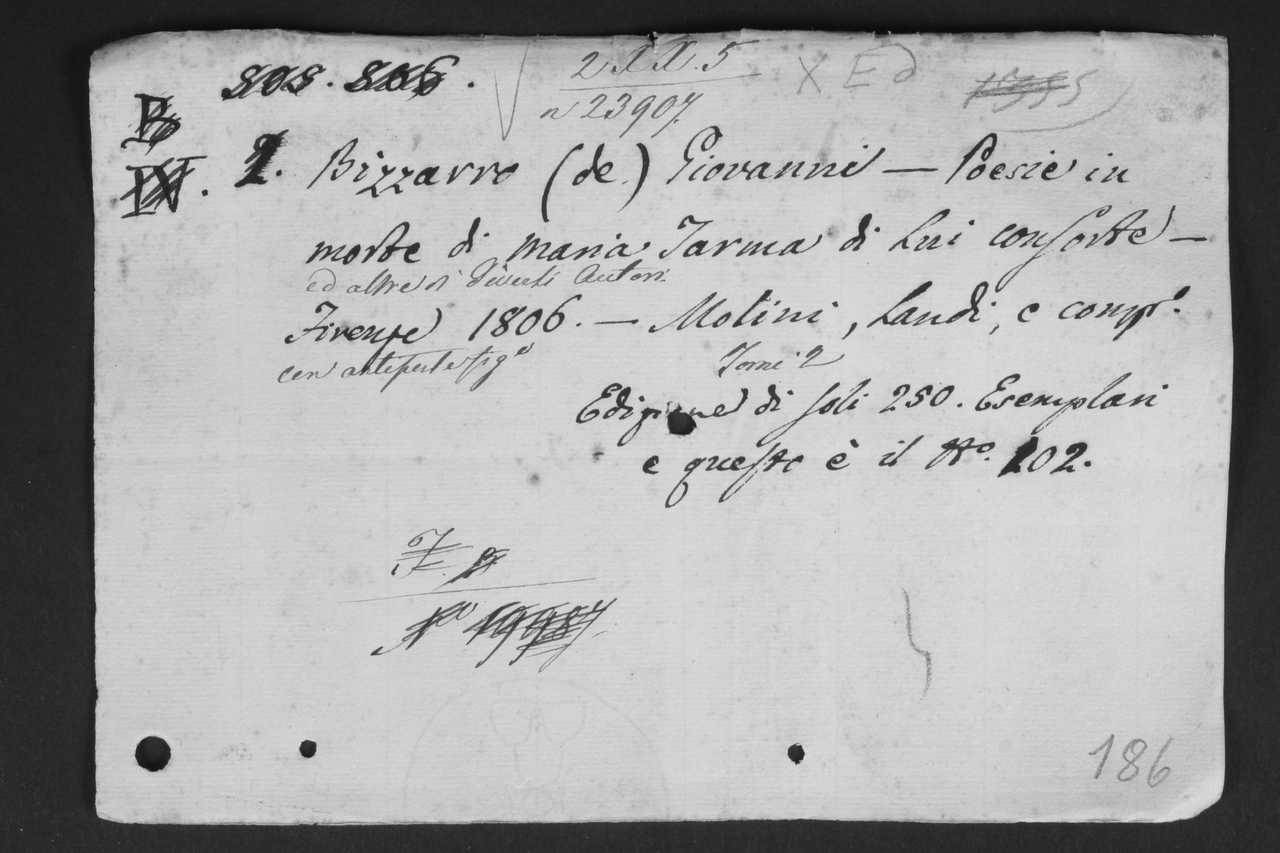 808. 806.
2 XX. 5
n 23907.
X E d
B
IX. 2. Bizzarro (de) Giovanni — Poesie in
morte di Maria Tarma di Lui consorte —
ed altre di diversi Autori
Firenze 1806. — Molini, Landi, e comp.
con antiporte fig.
Tomi 2
Edizione di soli 250. Esemplari
e questo è il No. 202.
No 19987.
186